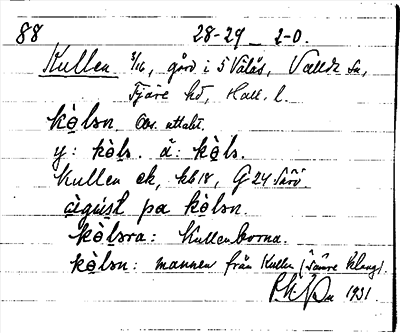 88 28-29 _ 2-0.
Kullen 3/16, gård i 5 Välås, Vallda sn,
Fjäre hd, Hall. l.
kò̤lsn. Obs. uttalet.
y: kò̤ls. ä: kò̤ls.
Kullen ek, kbl 18, G 24 Särö
àgust pa kò̤lsn.
kò̤lsra: Kullenborna.
kò̤lsn: mannen från Kullen (
1931